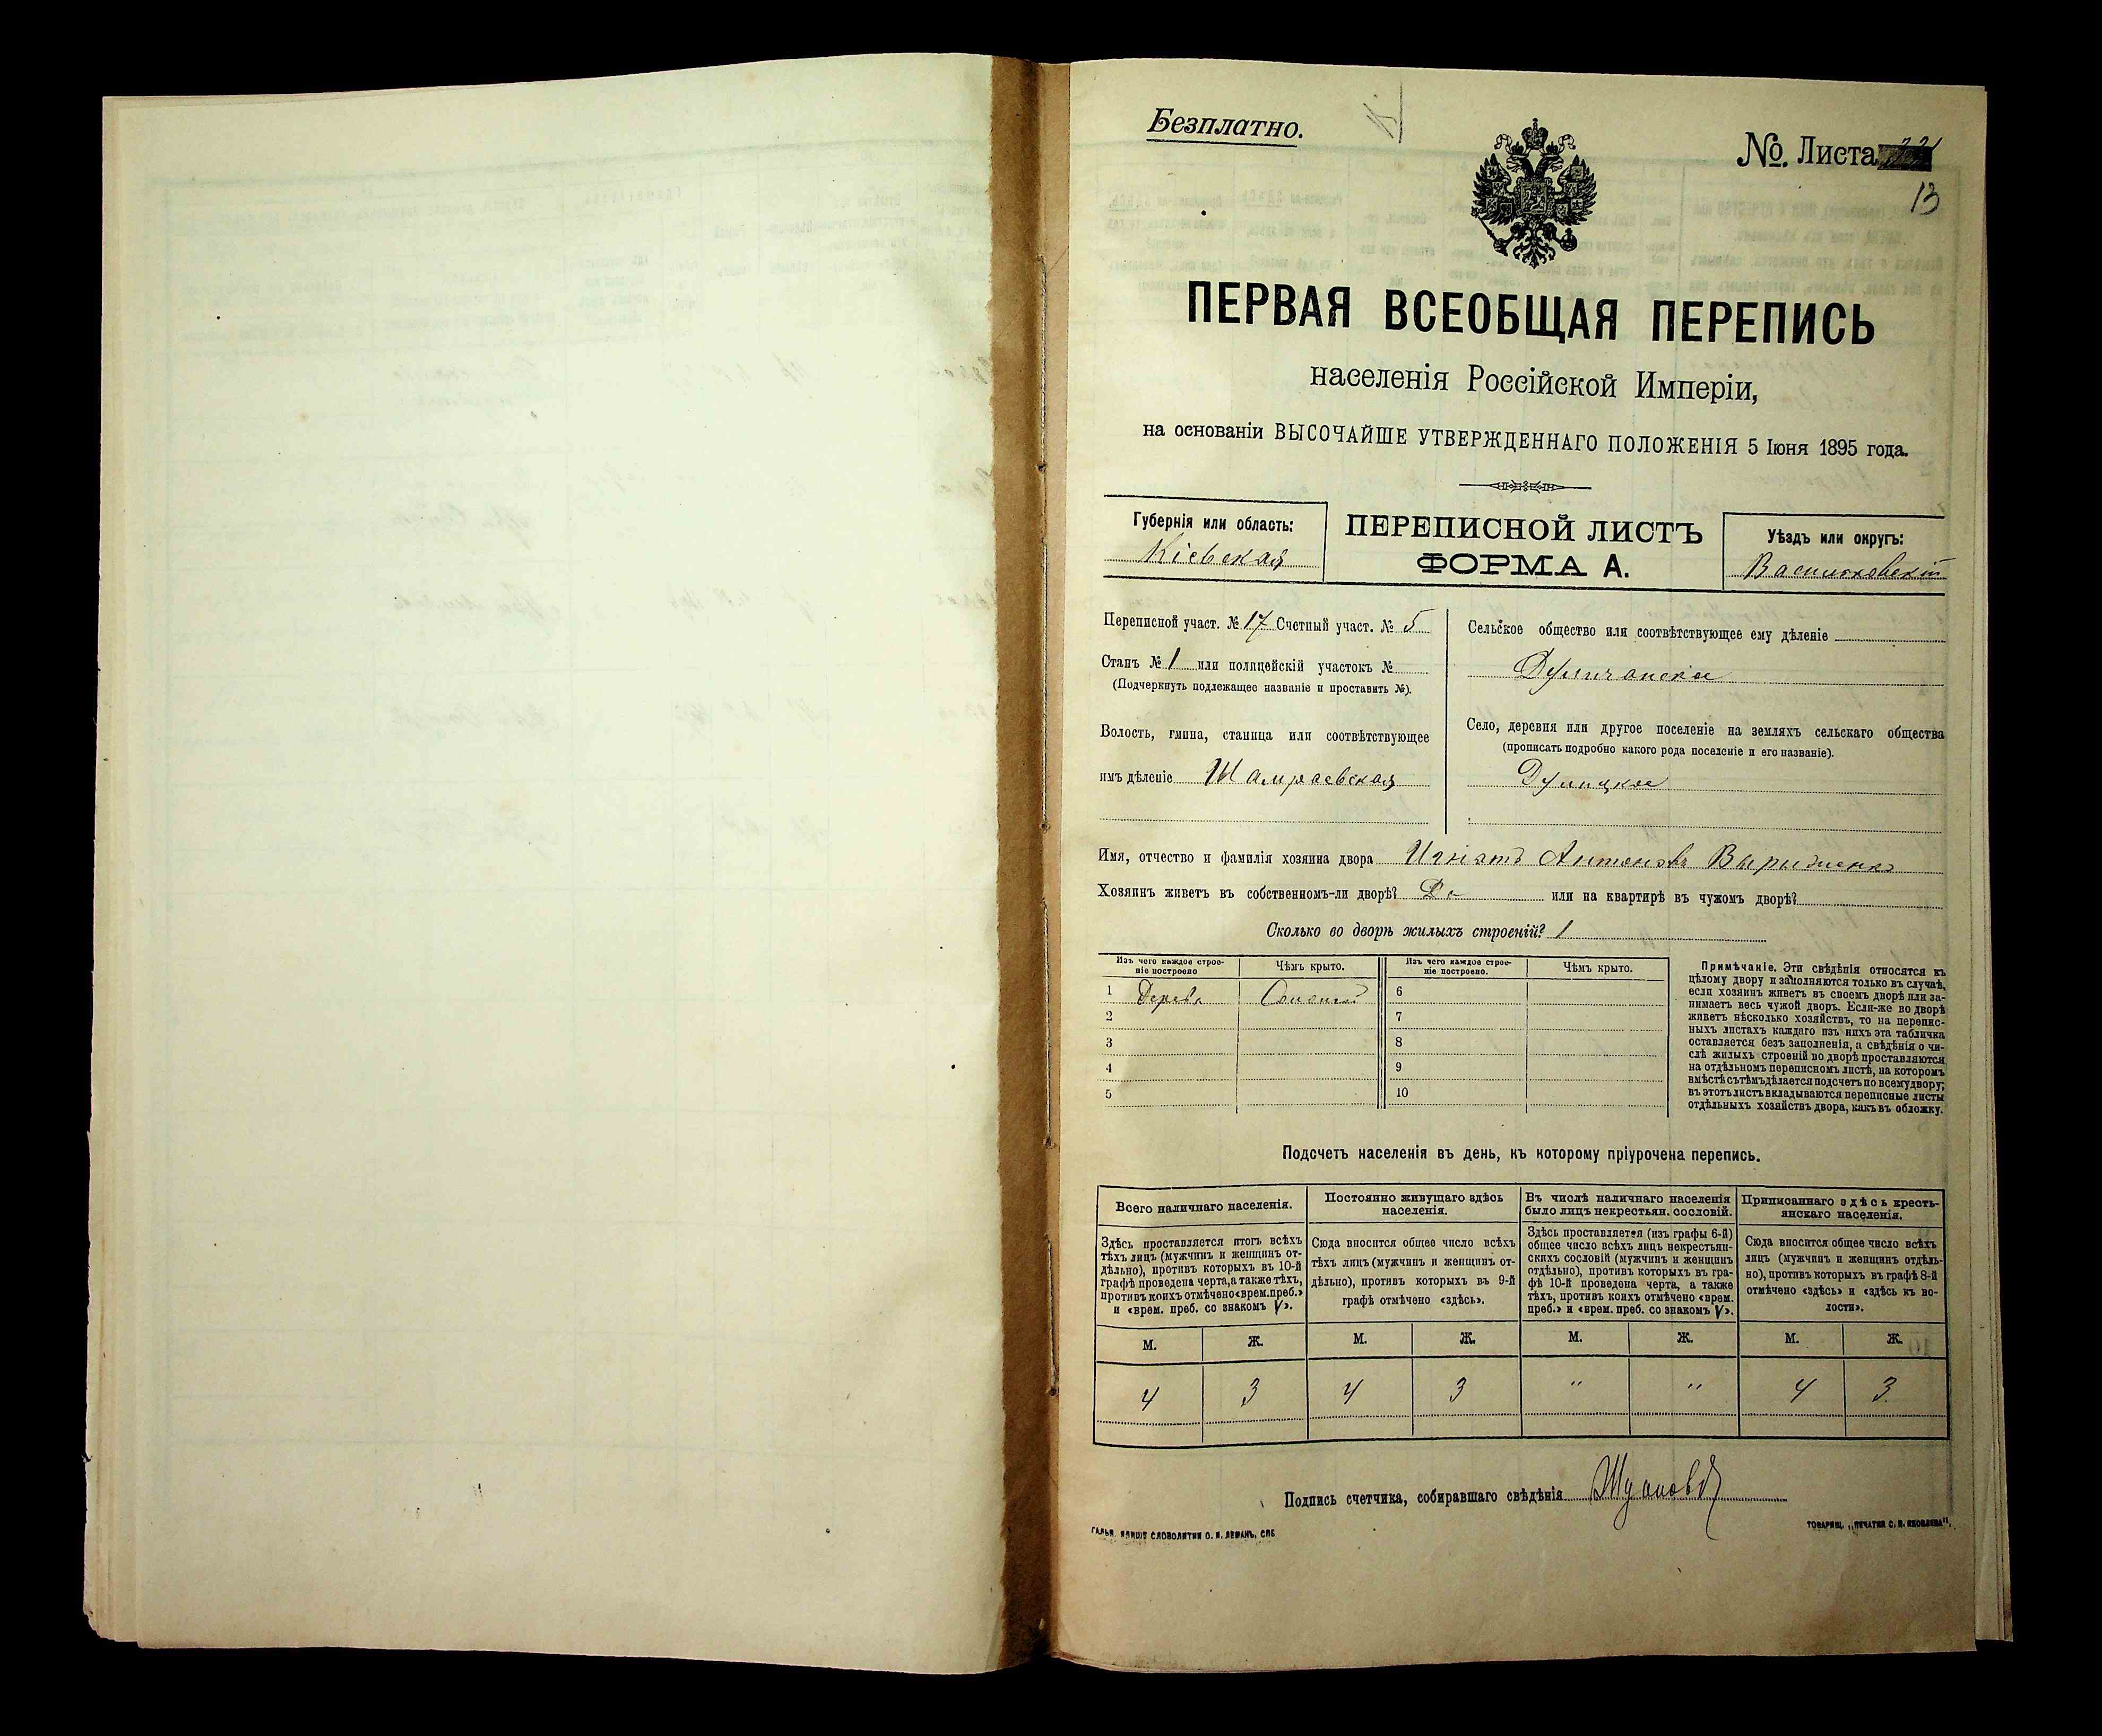 Безплатно.
№. Листа
13
ПЕРВАЯ ВСЕОБЩАЯ ПЕРЕПИСЬ
населенія Россійской Имперіи,
на основаніи ВЫСОЧАЙШЕ УТВЕРЖДЕННАГО ПОЛОЖЕНІЯ 5 Іюня 1895 года.
Губернія или область:
Кіевская
ПЕРЕПИСНОЙ ЛИСТЪ
ФОРМА А.
Уѣздъ или округъ:
Васильковскій
Переписной участ. № 17 Счетный участ. № 5
Станъ № 1 или полицейскій участокъ №
(Подчеркнуть подлежащее названіе и проставить №).
Волость, гмина, станица или соотвѣтствующее
имъ дѣленіе Шамраевская
Сельское общество или соотвѣтствующее ему дѣленіе
Село, деревня или другое поселеніе на земляхъ сельскаго общества
(прописать подробно какого рода поселеніе и его названіе).
Имя, отчество и фамилія хозяина двора Игнатъ Антоновъ
Хозяинъ живетъ въ собственномъ-ли дворѣ? Да или на квартирѣ въ чужомъ дворѣ?
Сколько во дворѣ жилыхъ строеній? 1
Изъ чего каждое строе-
ніе построено
Чѣмъ крыто.
Изъ чего каждое строе-
ніе построено.
Чѣмъ крыто.
1 Дерева Соломой 6
2 7
3 8
4 9
5 10
Примѣчаніе. Эти свѣдѣнія относятся къ
цѣлому двору и заполняются только въ случаѣ,
если хозяинъ живетъ въ своемъ дворѣ или за-
нимаетъ весь чужой дворъ. Если-же во дворѣ
живетъ нѣсколько хозяйствъ, то на перепис-
ныхъ листахъ каждаго изъ нихъ эта табличка
оставляется безъ заполненія, а свѣдѣнія о чи-
слѣ жилыхъ строеній во дворѣ проставляются
на отдѣльномъ переписномъ листѣ, на которомъ
вмѣстѣ съ тѣмъ дѣлается подсчетъ по всему двору;
въ этотъ листъ вкладываются переписные листы
отдѣльныхъ хозяйствъ двора, какъ въ обложку.
Подсчетъ населенія въ день, къ которому пріурочена перепись.
Всего наличнаго населенія.
Здѣсь проставляется итогъ всѣхъ
тѣхъ лицъ (мужчинъ и женщинъ от-
дѣльно), противъ которыхъ въ 10-й
графѣ проведена черта, а также тѣхъ,
противъ коихъ отмѣчено «врем. преб.»
и «врем. преб. со знакомъ V».
Постоянно живущаго здѣсь
населенія.
Сюда вносится общее число всѣхъ
тѣхъ лицъ (мужчинъ и женщинъ от-
дѣльно), противъ которыхъ въ 9-й
графѣ отмѣчено «здѣсь».
Въ числѣ наличнаго населенія
было лицъ некрестьян. сословій.
Здѣсь проставляется (изъ графы 6-й)
общее число всѣхъ лицъ некрестьян-
скихъ сословій (мужчинъ и женщинъ
отдѣльно), противъ которыхъ въ гра-
фѣ 10-й проведена черта, а также
тѣхъ, противъ коихъ отмѣчено «врем.
преб.» и «врем. преб. со знакомъ V».
Приписаннаго здѣсь кресть-
янскаго населенія.
Сюда вносится общее число всѣхъ
лицъ (мужчинъ и женщинъ отдѣль-
но), противъ которыхъ въ графѣ 8-й
отмѣчено «здѣсь» и «здѣсь къ во-
лости».
М. Ж. М. Ж. М. Ж. М. Ж.
4 3 4 3 " " 4 3
Подпись счетчика, собиравшаго свѣдѣнія
СЛОВОЛИТНИ О. И. ЛЕМАНЪ, СПБ
ТОВАРИЩ. „ПЕЧАТНЯ С. П. ЯКОВЛЕВА".